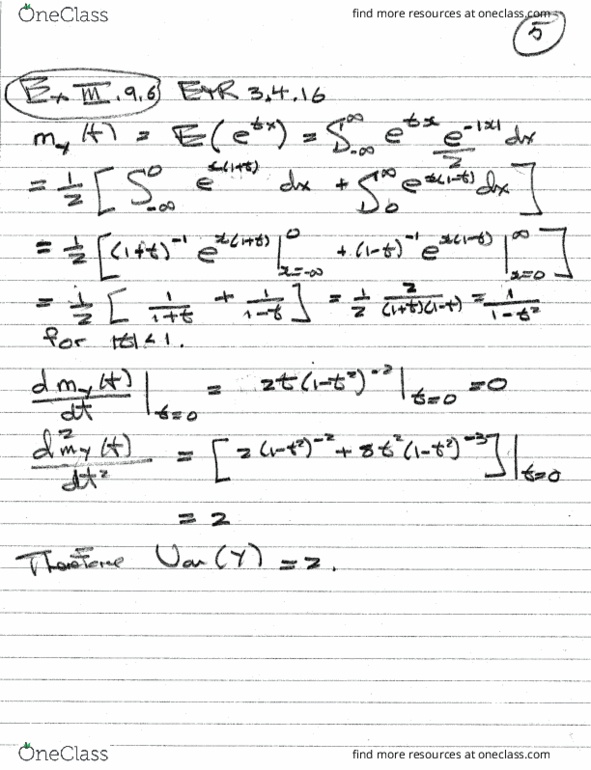 OneClass find more resources at oneclass.com
5
Ex III.9.6 E+R 3.4.16
m_y(t) = E(e^{tx}) = ∫_{-∞}^{∞} e^{tx} e^{-|x|}/2 dx
= 1/2 [ ∫_{-∞}^{0} e^{x(1+t)} dx + ∫_{0}^{∞} e^{-x(1-t)} dx ]
= 1/2 [ (1+t)^{-1} e^{x(1+t)} |_{x=-∞}^{0} + (1-t)^{-1} e^{x(1-t)} |_{x=0}^{∞} ]
= 1/2 [ 1/(1+t) + 1/(1-t) ] = 1/2 2/((1+t)(1-t)) = 1/(1-t²)
for |t| < 1.
d m_y(t)/dt |_{t=0} = 2t(1-t²)^{-2} |_{t=0} = 0
d² m_y(t)/dt² = [ 2(1-t²)^{-2} + 8t²(1-t²)^{-3} ] |_{t=0}
= 2
Therefore Var(Y) = 2.
OneClass find more resources at oneclass.com